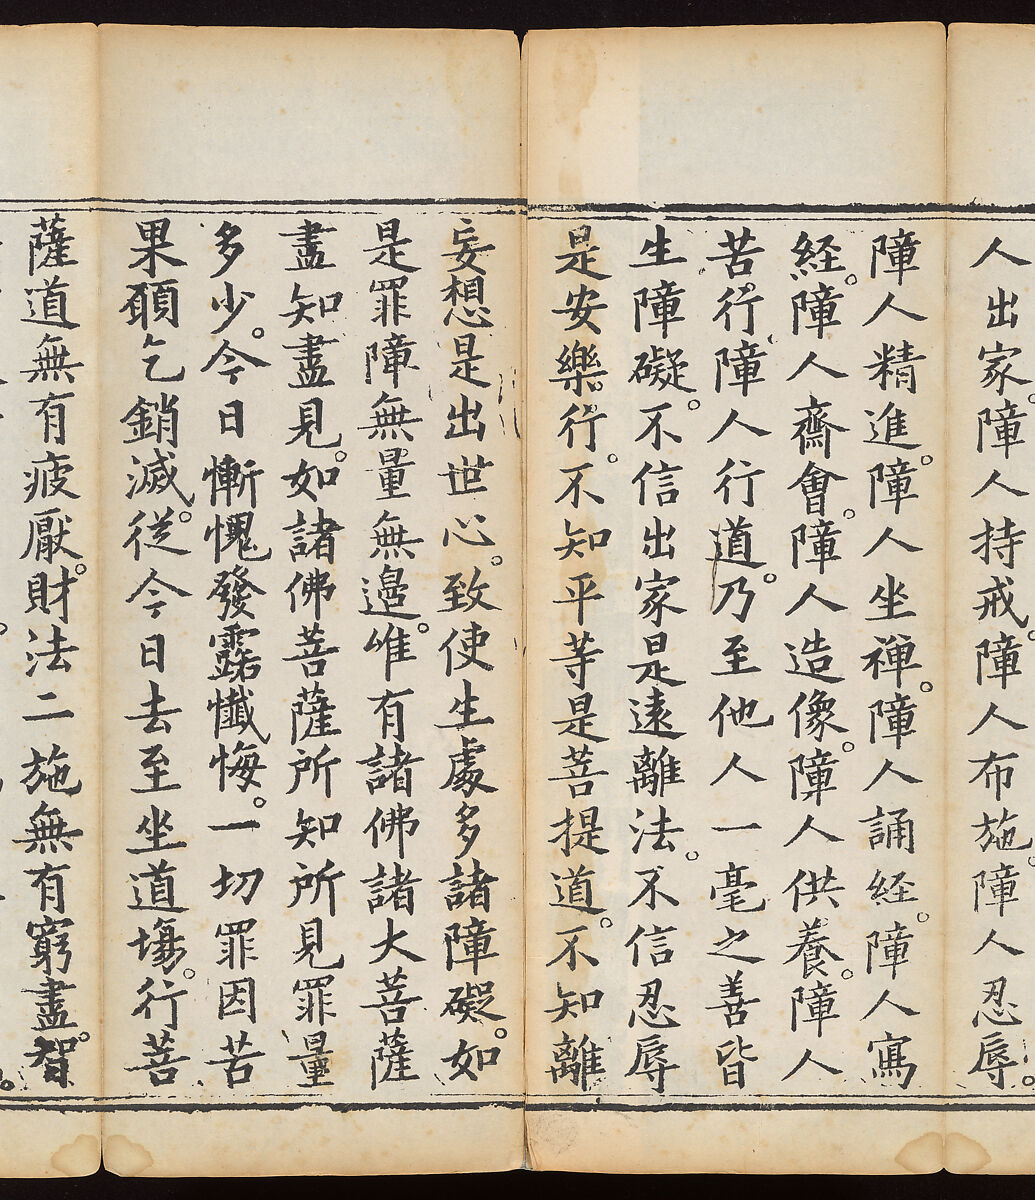 人出家。障人持戒。障人布施。障人忍辱。
障人精進。障人坐禪。障人誦経。障人寫
経。障人齋會。障人造像。障人供養。障人
苦行。障人行道。乃至他人一毫之善皆
生障礙。不信出家是遠離法。不信忍辱
是安樂行。不知平等是菩提道。不知離
妄想是出世心。致使生處多諸障礙。如
是罪障無量無邊。唯有諸佛諸大菩薩
盡知盡見。如諸佛菩薩所知所見罪量
多少。今日慚愧發露懺悔。一切罪因苦
果願乞銷滅。從今日去至坐道場。行菩
薩道無有疲厭。財法二施無有窮盡。智